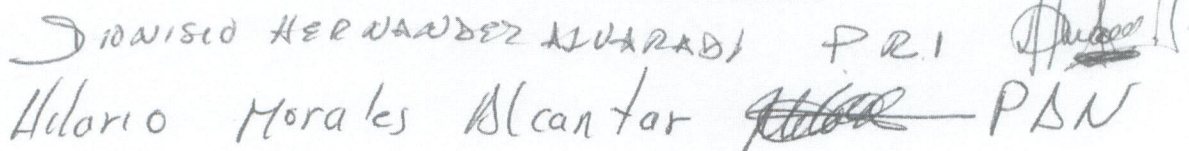 DIONISIO HERNANDEZ ALVARADO PRI
Hilario Morales Alcantar PAN